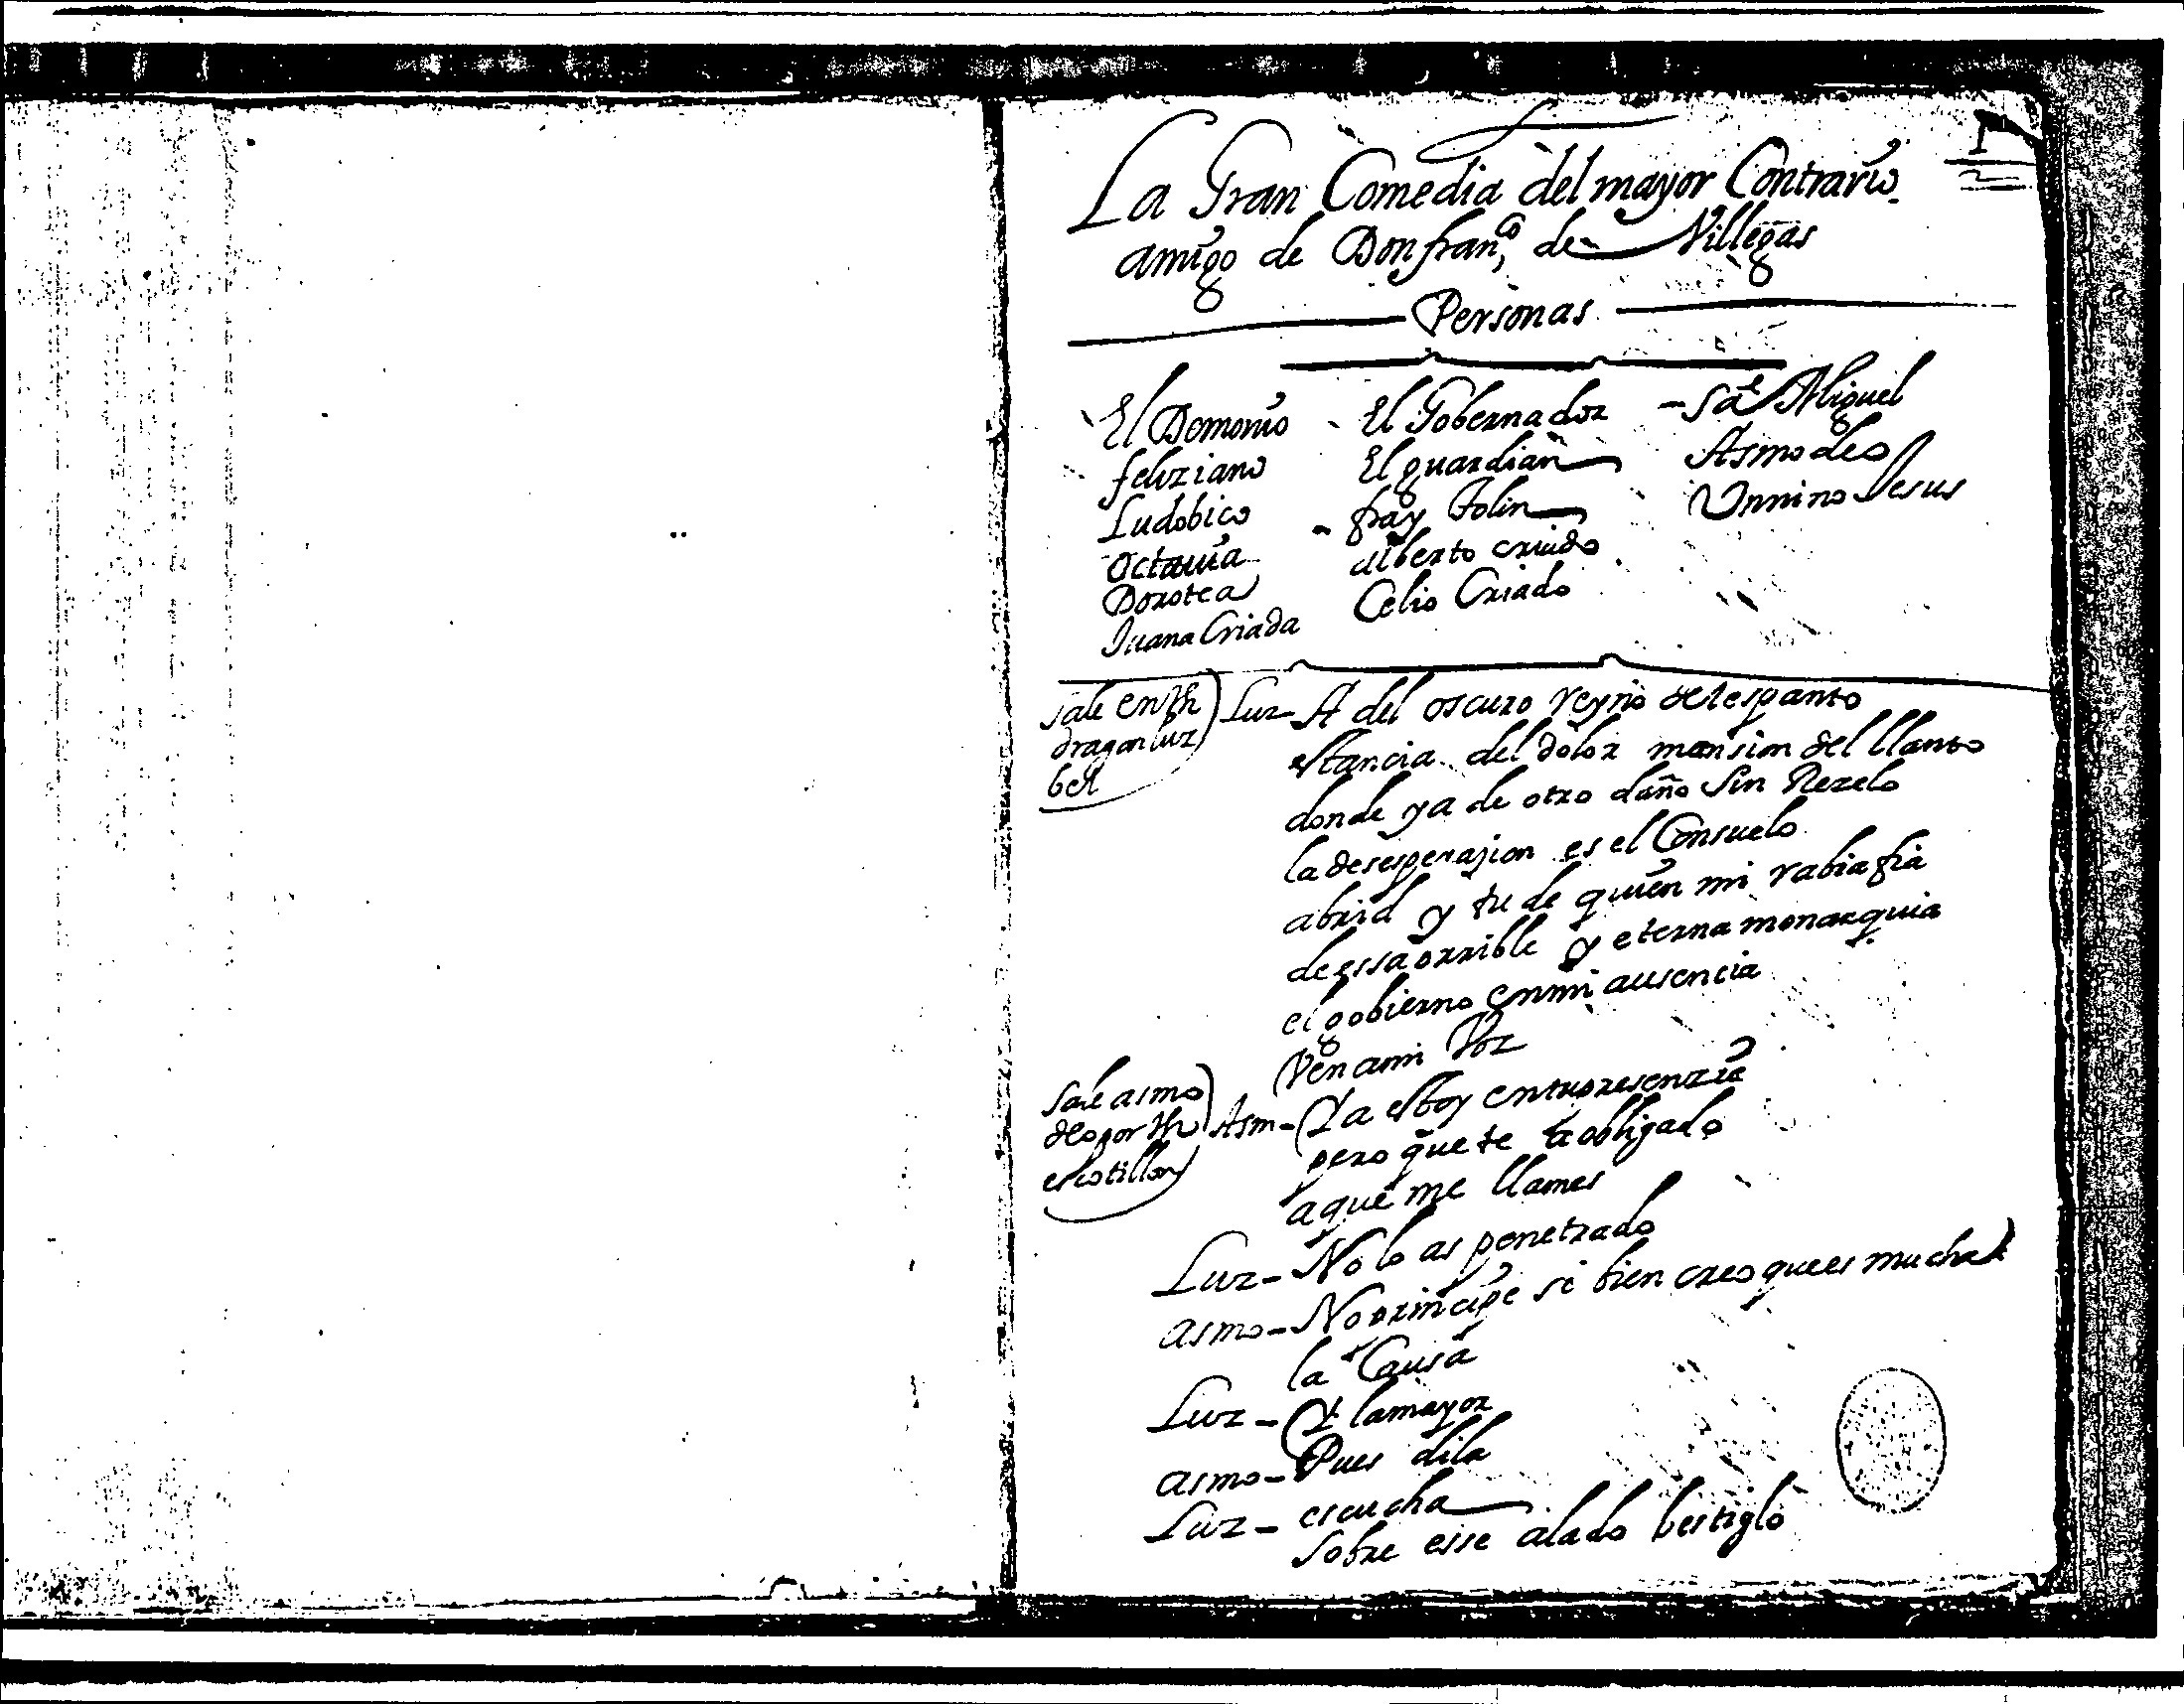 1
La Gran Comedia del mayor Contrario
amigo de Don fran,co de Villegas
Personas
El Demonio - El Gobernador - Sn Miguel
feliziano El guardian Asmodeo
Ludobico - fray Tolin Un nino Jesus
Octauia alberto criado
Dorotea Celio Criado
Juana Criada
sale en
dragon luz
bel
Luz - A del oscuro reyno del espanto
estancia del dolor mansion del llanto
donde ya de otro daño sin Rezelo
la desesperazion es el Consuelo
abrid y tu de quien mi rabia fia
de essa orrible y eterna monarquia
el gobierno en mi ausencia
Ven a mi Voz
sale asmo
deo por
escotillon
Asm - Ya estoy en tu presenzia
pero que te a obligado
a que me llames
Luz - No lo as penetrado
asmo - No principe si bien creo que es mucha
la Causa
Luz - Y la mayor
asmo - Pues dila
Luz - escucha
Sobre esse alado bestiglo